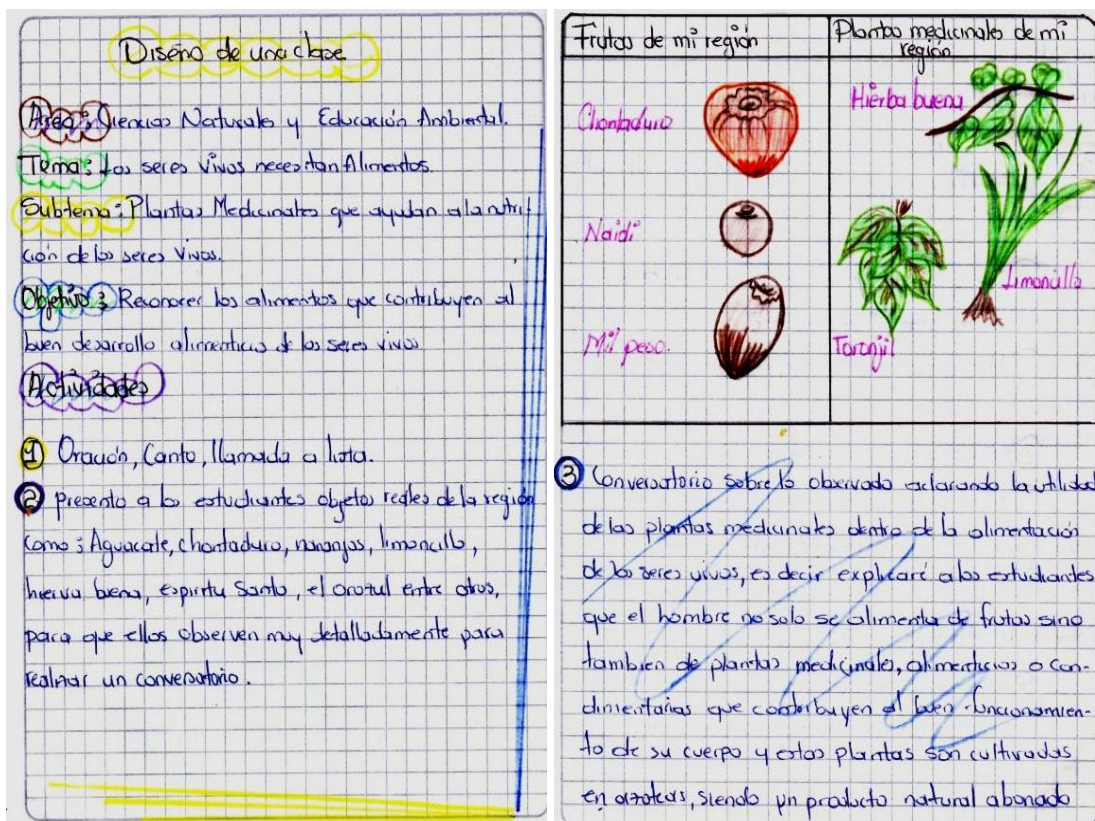 Diseño de una clase
Area: Ciencias Naturales y Educación Ambiental.
Tema: Los seres vivos necesitan Alimentos.
Subtema: Plantas Medicinales que ayudan a la nutri-
ción de los seres vivos.
Objetivo: Reconocer los alimentos que contribuyen al
buen desarrollo alimenticio de los seres vivos
Actividades
1 Oración, Canto, llamada a lista.
2 presento a los estudiantes objetos reales de la región
como: Aguacate, chontaduro, naranjas, limoncillo,
hierva buena, espiritu Santo, el orozul entre otros,
para que ellos observen muy detalladamente para
realizar un conversatorio.
Frutas de mi región
Chontaduro
Naidi
Mil peso.
Plantas medicinales de mi
región
Hierba buena
Limoncillo
Toronjil
3 Conversatorio sobre lo observado aclarando la utilidad
de las plantas medicinales dentro de la alimentación
de los seres vivos, es decir explicaré a los estudiantes
que el hombre no solo se alimenta de frutas sino
tambien de plantas medicinales, alimenticias o con-
dimentarias que contribuyen al buen funcionamien-
to de su cuerpo y estas plantas son cultivadas
en azoteas, siendo un producto natural abonado